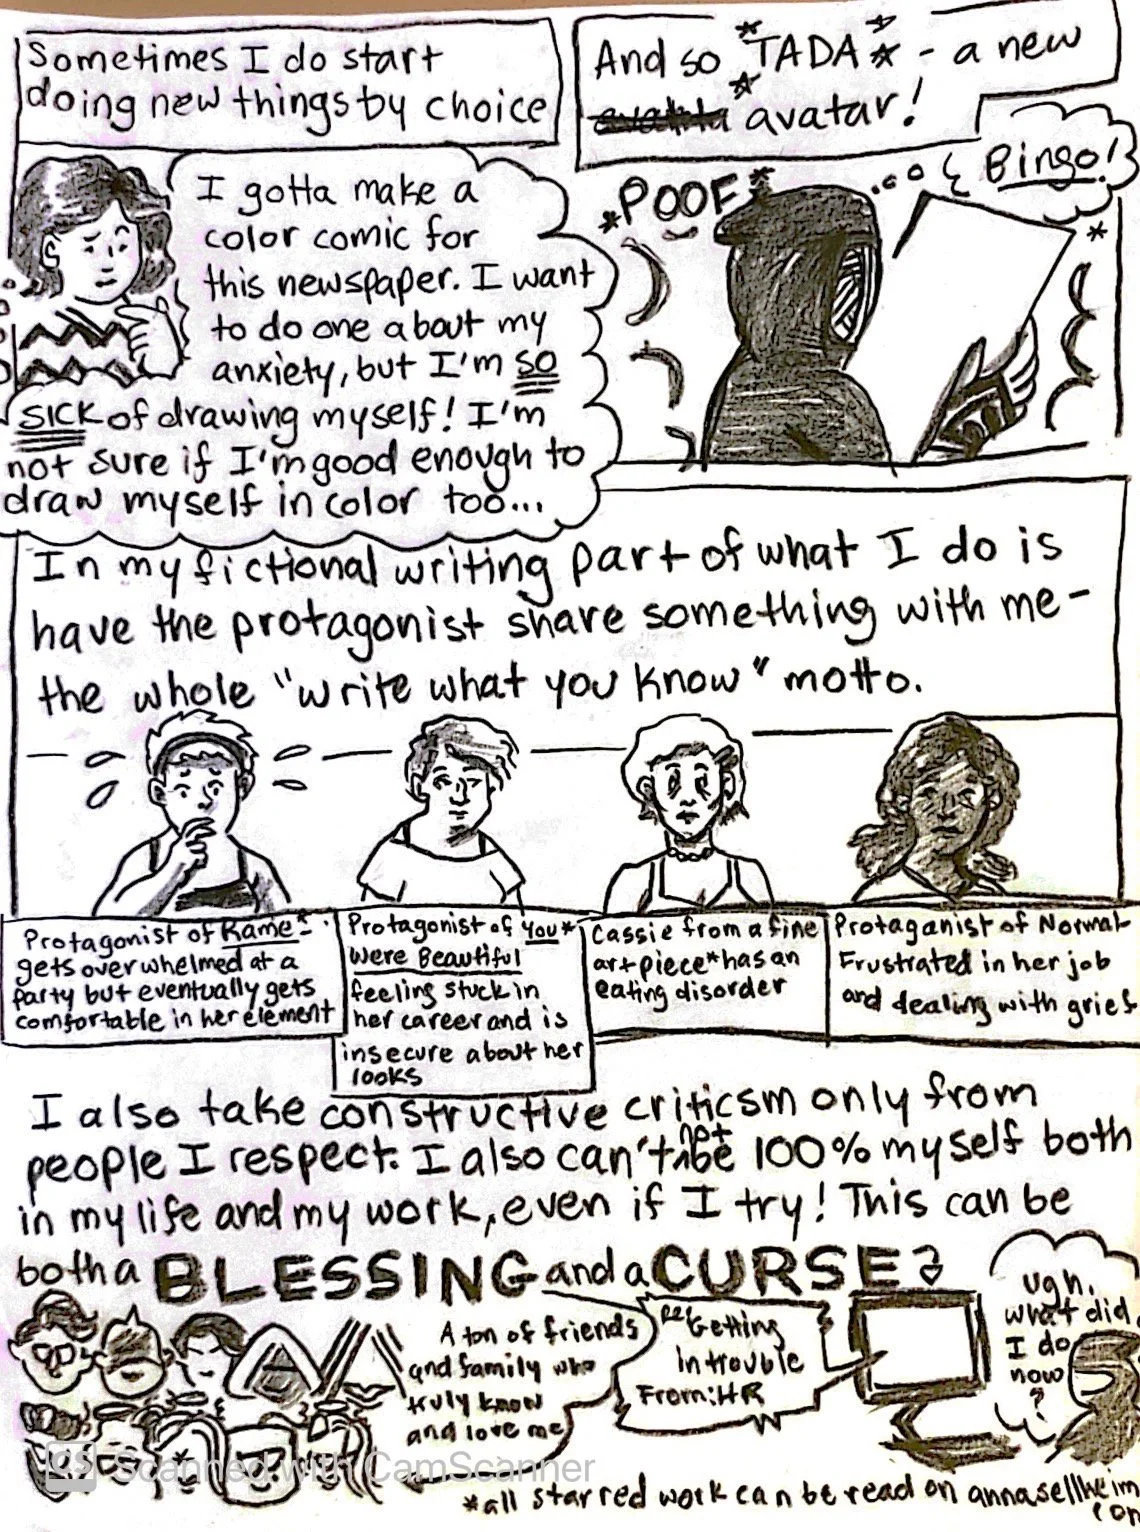 Sometimes I do start
doing new things by choice
And so *TADA* - a new
* avatar!
I gotta make a
color comic for
this newspaper. I want
to do one about my
anxiety, but I'm so
SICK of drawing myself! I'm
not sure if I'm good enough to
draw myself in color too...
*POOF*
Bingo!
*
In my fictional writing part of what I do is
have the protagonist share something with me-
the whole "write what you know" motto.
Protagonist of Rame*
gets overwhelmed at a
party but eventually gets
comfortable in her element
Protagonist of You*
Were Beautiful
feeling stuck in
her career and is
insecure about her
looks
Cassie from a fine
art piece* has an
eating disorder
Protaganist of Normal
Frustrated in her job
and dealing with grief
I also take constructive criticsm only from
people I respect. I also can't not be 100% myself both
in my life and my work, even if I try! This can be
both a BLESSING and a CURSE:
A ton of friends
and family who
truly know
and love me
Re: Getting
in trouble
From: HR
ugh.
what did
I do
now
?
CS Scanned with CamScanner
*all starred work can be read on annasellheim
.com